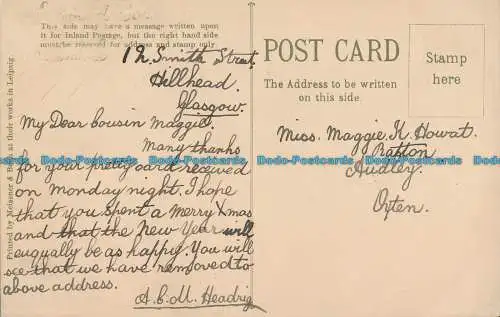 This side may have a message written upon
it for Inland Postage, but the right hand side
must be reserved for address and stamp only
12. Smith Street,
Hillhead.
Glasgow.
My Dear Cousin Maggie.
Many thanks
for your pretty card received
on Monday night. I hope
that you spent a Merry Xmas
and that the New Year will
euqually be as happy. You will
see that we have removed to
above address.
A.C.M. Headrig
Printed by Meissner & at their works in Leipzig.
POST CARD
The Address to be written
on this side.
Stamp
here
Miss. Maggie. K. Howat.
Audley.
Dodo-Postcards Dodo-Postcards Dodo-Postcards Dodo-Postcards Dodo-Postcards